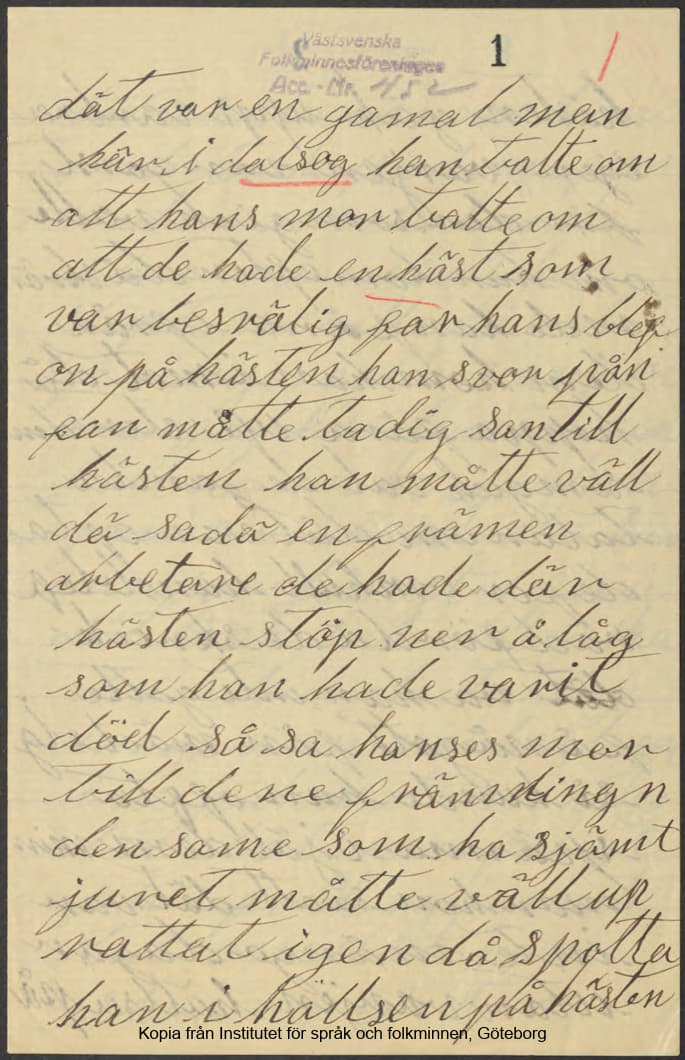 Västsvenska
Folkminnesföreningen
Acc.-Nr. 452
1
dät var en gamal man
här i dalsog han talte om
att hans mor talte om
att de hade en häst som
var besrälig far hans blef
on på hästen han svor på'n
fan måtte ta dig san till
hästen han måtte väll
dä sa dä en främen
arbetare de hade där
hästen stöp ner å låg
som han hade varit
död så sa hanses mor
till dene främlingn
den same som ha sjämt
juret måtte väll up
rattat igen då spotta
han i hällsen på hästen
Kopia från Institutet för språk och folkminnen, Göteborg